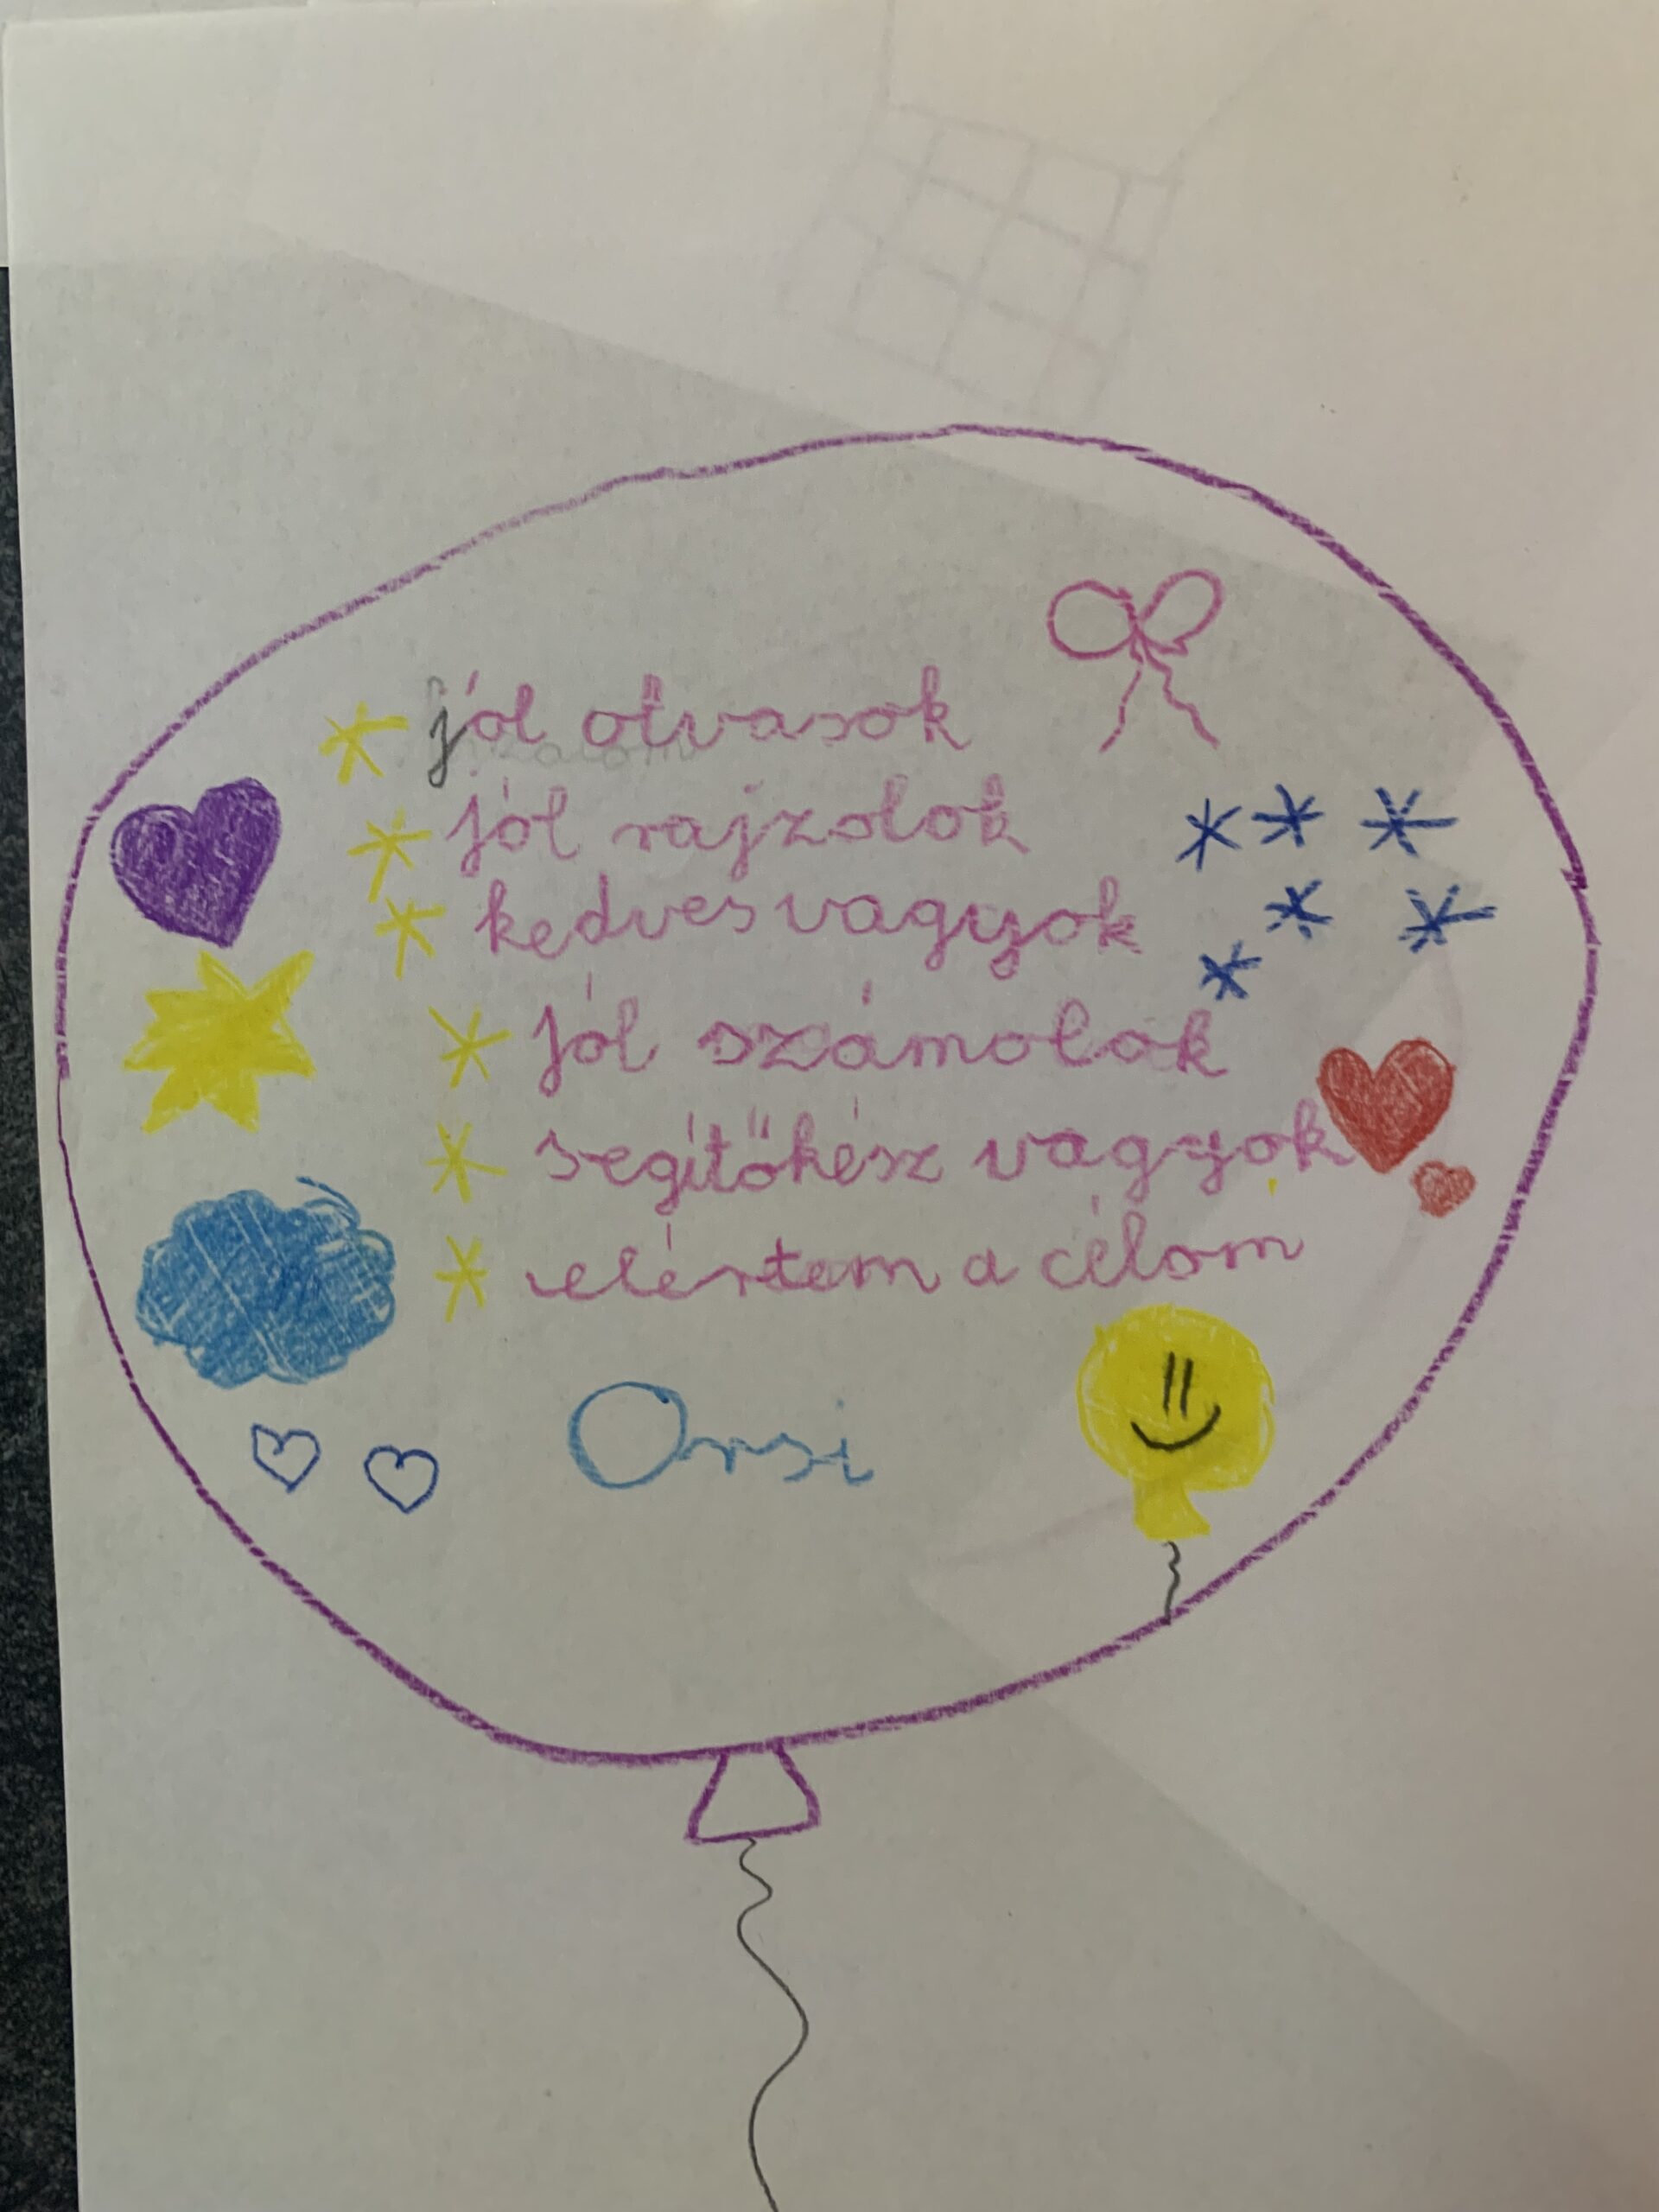 * jól olvasok
* jól rajzolok
* kedves vagyok
* jól számolok
* segítőkész vagyok
* elértem a célom
Orsi